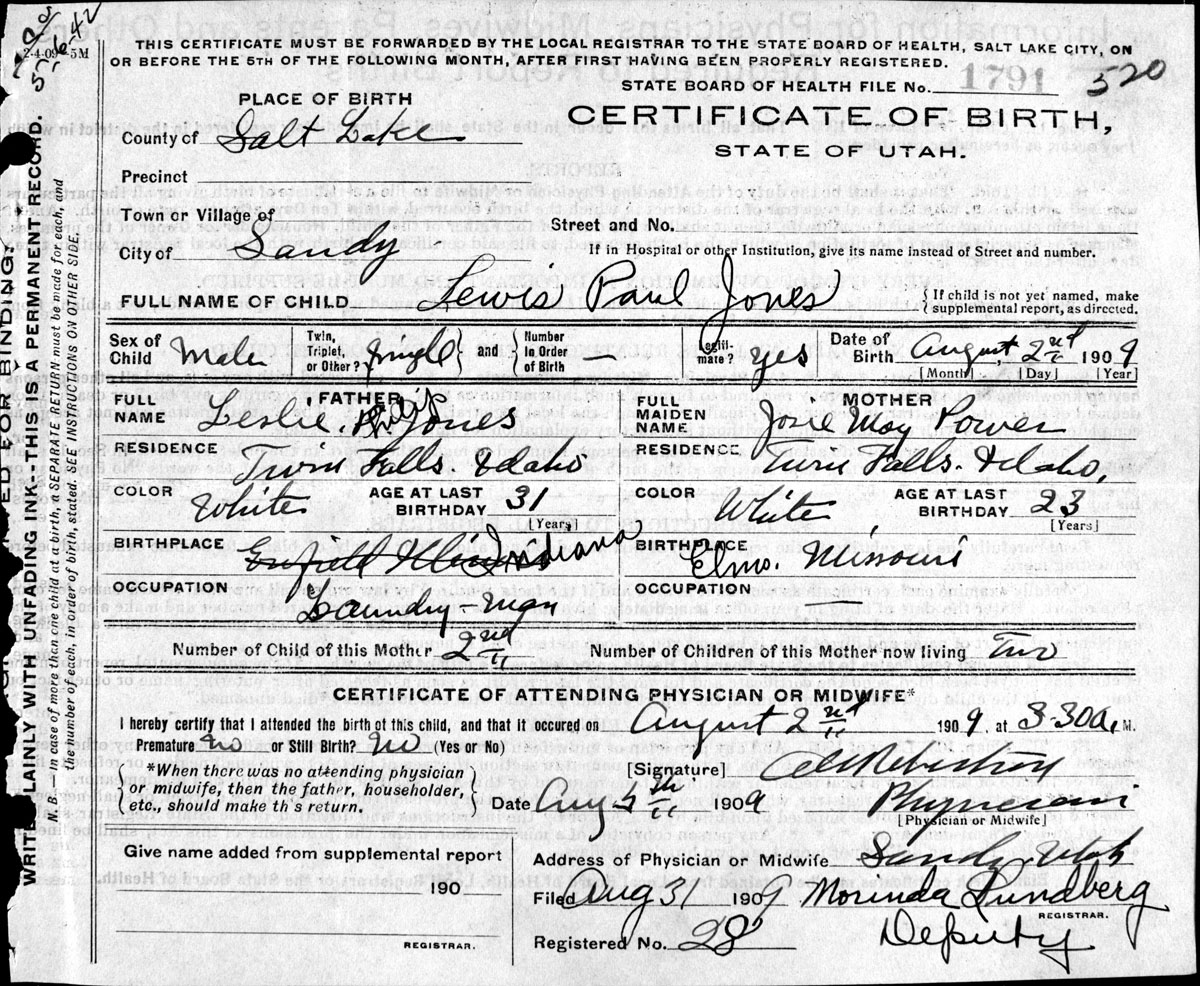 2-4-09-5M
THIS CERTIFICATE MUST BE FORWARDED BY THE LOCAL REGISTRAR TO THE STATE BOARD OF HEALTH, SALT LAKE CITY, ON
OR BEFORE THE 5TH OF THE FOLLOWING MONTH, AFTER FIRST HAVING BEEN PROPERLY REGISTERED.
STATE BOARD OF HEALTH FILE No. 1791 520
PLACE OF BIRTH
CERTIFICATE OF BIRTH,
STATE OF UTAH.
County of Salt Lake
Precinct
Town or Village of
City of Sandy
Street and No.
If in Hospital or other Institution, give its name instead of Street and number.
FULL NAME OF CHILD Lewis Paul Jones {If child is not yet named, make
supplemental report, as directed.
Sex of Child Male Twin, Triplet, or Other? Single } and { Number In Order of Birth — Legitimate? yes Date of Birth August 2nd 1909
[Month] [Day] [Year]
FATHER MOTHER
FULL NAME Leslie Jones FULL MAIDEN NAME Josie May Power
RESIDENCE Twin Falls. Idaho RESIDENCE Twin Falls. Idaho.
COLOR White AGE AT LAST BIRTHDAY 31 [Years] COLOR White AGE AT LAST BIRTHDAY 23 [Years]
BIRTHPLACE Indiana BIRTHPLACE Elmo. Missouri
OCCUPATION Laundry-man OCCUPATION
Number of Child of this Mother 2nd Number of Children of this Mother now living Two
CERTIFICATE OF ATTENDING PHYSICIAN OR MIDWIFE*
I hereby certify that I attended the birth of this child, and that it occured on August 2nd 1909, at 3-30a. M.
Premature? No or Still Birth? No (Yes or No)
*When there was no attending physician
or midwife, then the father, householder,
etc., should make th's return.
[Signature]
Date Aug 5th 1909 Physician
[Physician or Midwife]
Give name added from supplemental report
190
REGISTRAR.
Address of Physician or Midwife Sandy Utah
Filed Aug 31 1909 Morinda Sundberg
REGISTRAR.
Registered No. 28 Deputy
WRITE PLAINLY WITH UNFADING INK—THIS IS A PERMANENT RECORD.
N. B. In case of more than one child at a birth, a SEPARATE RETURN must be made for each, and
the number of each, in order of birth, stated. SEE INSTRUCTIONS ON OTHER SIDE.
FOR BINDING.